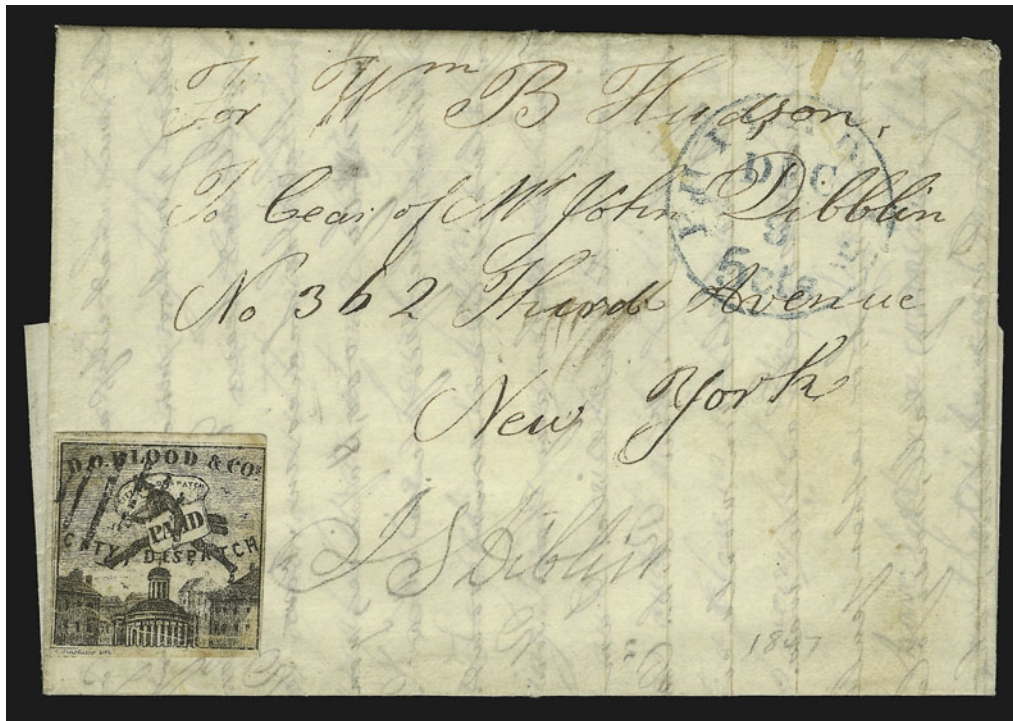 For Wm B Hudson,
To Cear of Mr John Dibblin
No 362 Thurd Avenue
New York
PHILADE
DEC
8
5cts
D.O. BLOOD & Co's
CITY DESPATCH
PAID
CITY DESPATCH
J S Diblin
1847